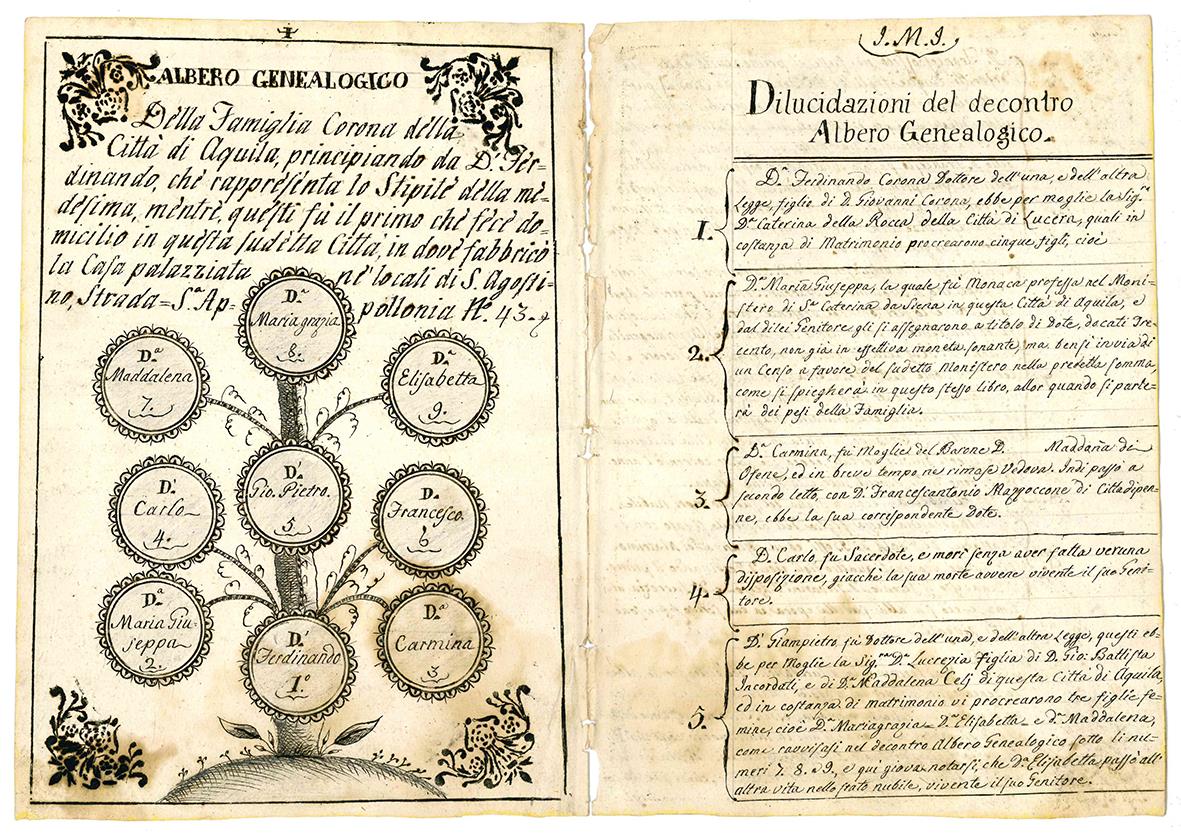 I
ALBERO GENEALOGICO
Della Famiglia Corona della
Città di Aquila, principiando da D. Fer=
dinando, che rappresenta lo Stipite della me=
desima, mentre, questi fù il primo che fece do=
micilio in questa sudetta Città, in dove fabbricò
la Casa palazziata ne' locali di S. Agosti=
no, Strada = S.ª Ap= pollonia N.º 43.
D.ª
Mariagrazia
8.
D.ª
Maddalena
7.
D.ª
Elisabetta
9.
D.
Gio. Pietro.
5.
D.
Carlo
4.
D.
Francesco.
6
D.ª
Maria Giu=
seppa
2.
D.
Ferdinando
1.º
D.ª
Carmina
3
J. M. J.
Dilucidazioni del decontro
Albero Genealogico.
1.
D. Ferdinando Corona Dottore dell'una, e dell'altra
Legge, figlio di D. Giovanni Corona, ebbe per moglie la Sig.ra
D.ª Caterina della Rocca della Città di Lucera, quali in
costanza di Matrimonio procrearono cinque figli, cioè
2.
D.ª Maria Giuseppa, la quale fù Monaca professa nel Moni=
stero di S.ª Caterina da Siena in questa Città di Aquila, e
dal dilei Genitore gli si assegnarono a titolo di Dote, docati Tre=
cento, non già in effettiva moneta sonante, ma bensì in via di
un Censo a favore del sudetto Monistero nella predetta somma,
come si spiegherà in questo stesso libro, allor quando si parle=
rà dei pesi della Famiglia.
3.
D.ª Carmina, fù Moglie del Barone D. Maddana di
Ofene, ed in breve tempo ne rimase Vedova. Indi passò a
secondo letto, con D. Francescantonio Mazzoccone di Cittadipen=
ne, ebbe la sua corrispondente Dote.
4.
D. Carlo, fu Sacerdote, e morì senza aver fatta veruna
disposizione, giacchè la sua morte avvene vivente il suo Geni=
tore.
5.
D. Giampietro, fù Dottore dell'una, e dell'altra Legge, questi eb=
be per Moglie la Sig.ra D.ª Lucrezia figlia di D. Gio: Battista
Incordati, e di D.ª Maddalena Celj di questa Città di Aquila,
ed in costanza di matrimonio vi procrearono tre figlie fe=
mine, cioè D.ª Mariagrazia = D.ª Elisabetta = e D.ª Maddalena,
come ravvisasi nel decontro Albero Genealogico sotto li nu=
meri 7. 8. e 9., e qui giova notarsi, che D.ª Elisabetta passò all'
altra vita nello stato nubile, vivente il suo Genitore.